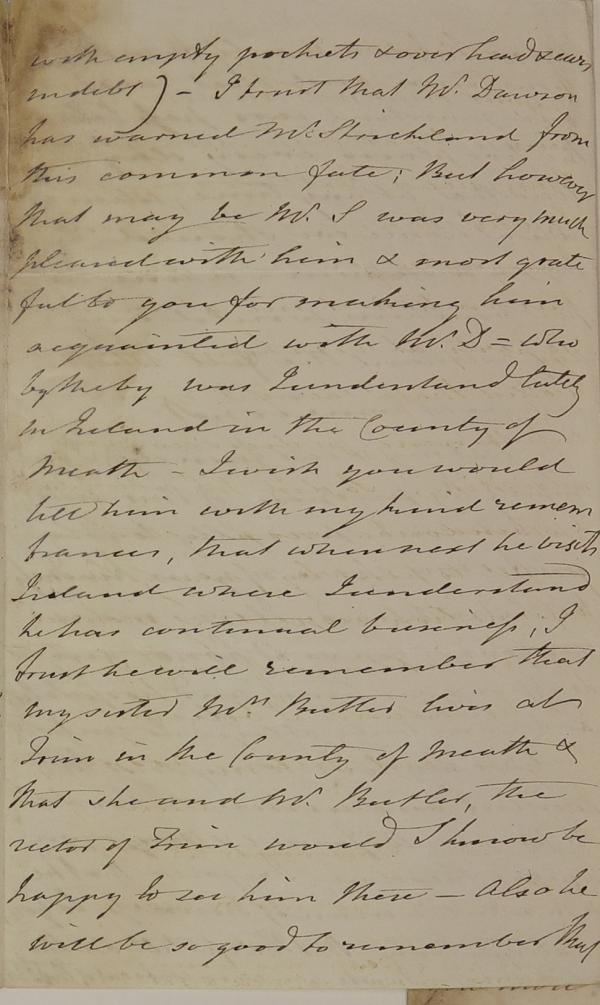 with empty pockets & over head & ears
in debt) - I trust that Mr. Dawson
has warned Mr. Strickland from
this common fate; But however
that may be Mr. S was very much
pleased with him & most grate
ful to you for making him
acquainted with Mr. D = who
by the by was I understand lately
in Ireland in the County of
Meath - I wish you would
tell him with my kind remem
brances, that when next he visits
Ireland where I understand
he has continual business, I
trust he will remember that
my sister Mrs Butler lives at
Trim in the County of Meath &
that she and Mr. Butler, the
rector of Trim would I know be
happy to see him there - Also he
will be so good to remember that